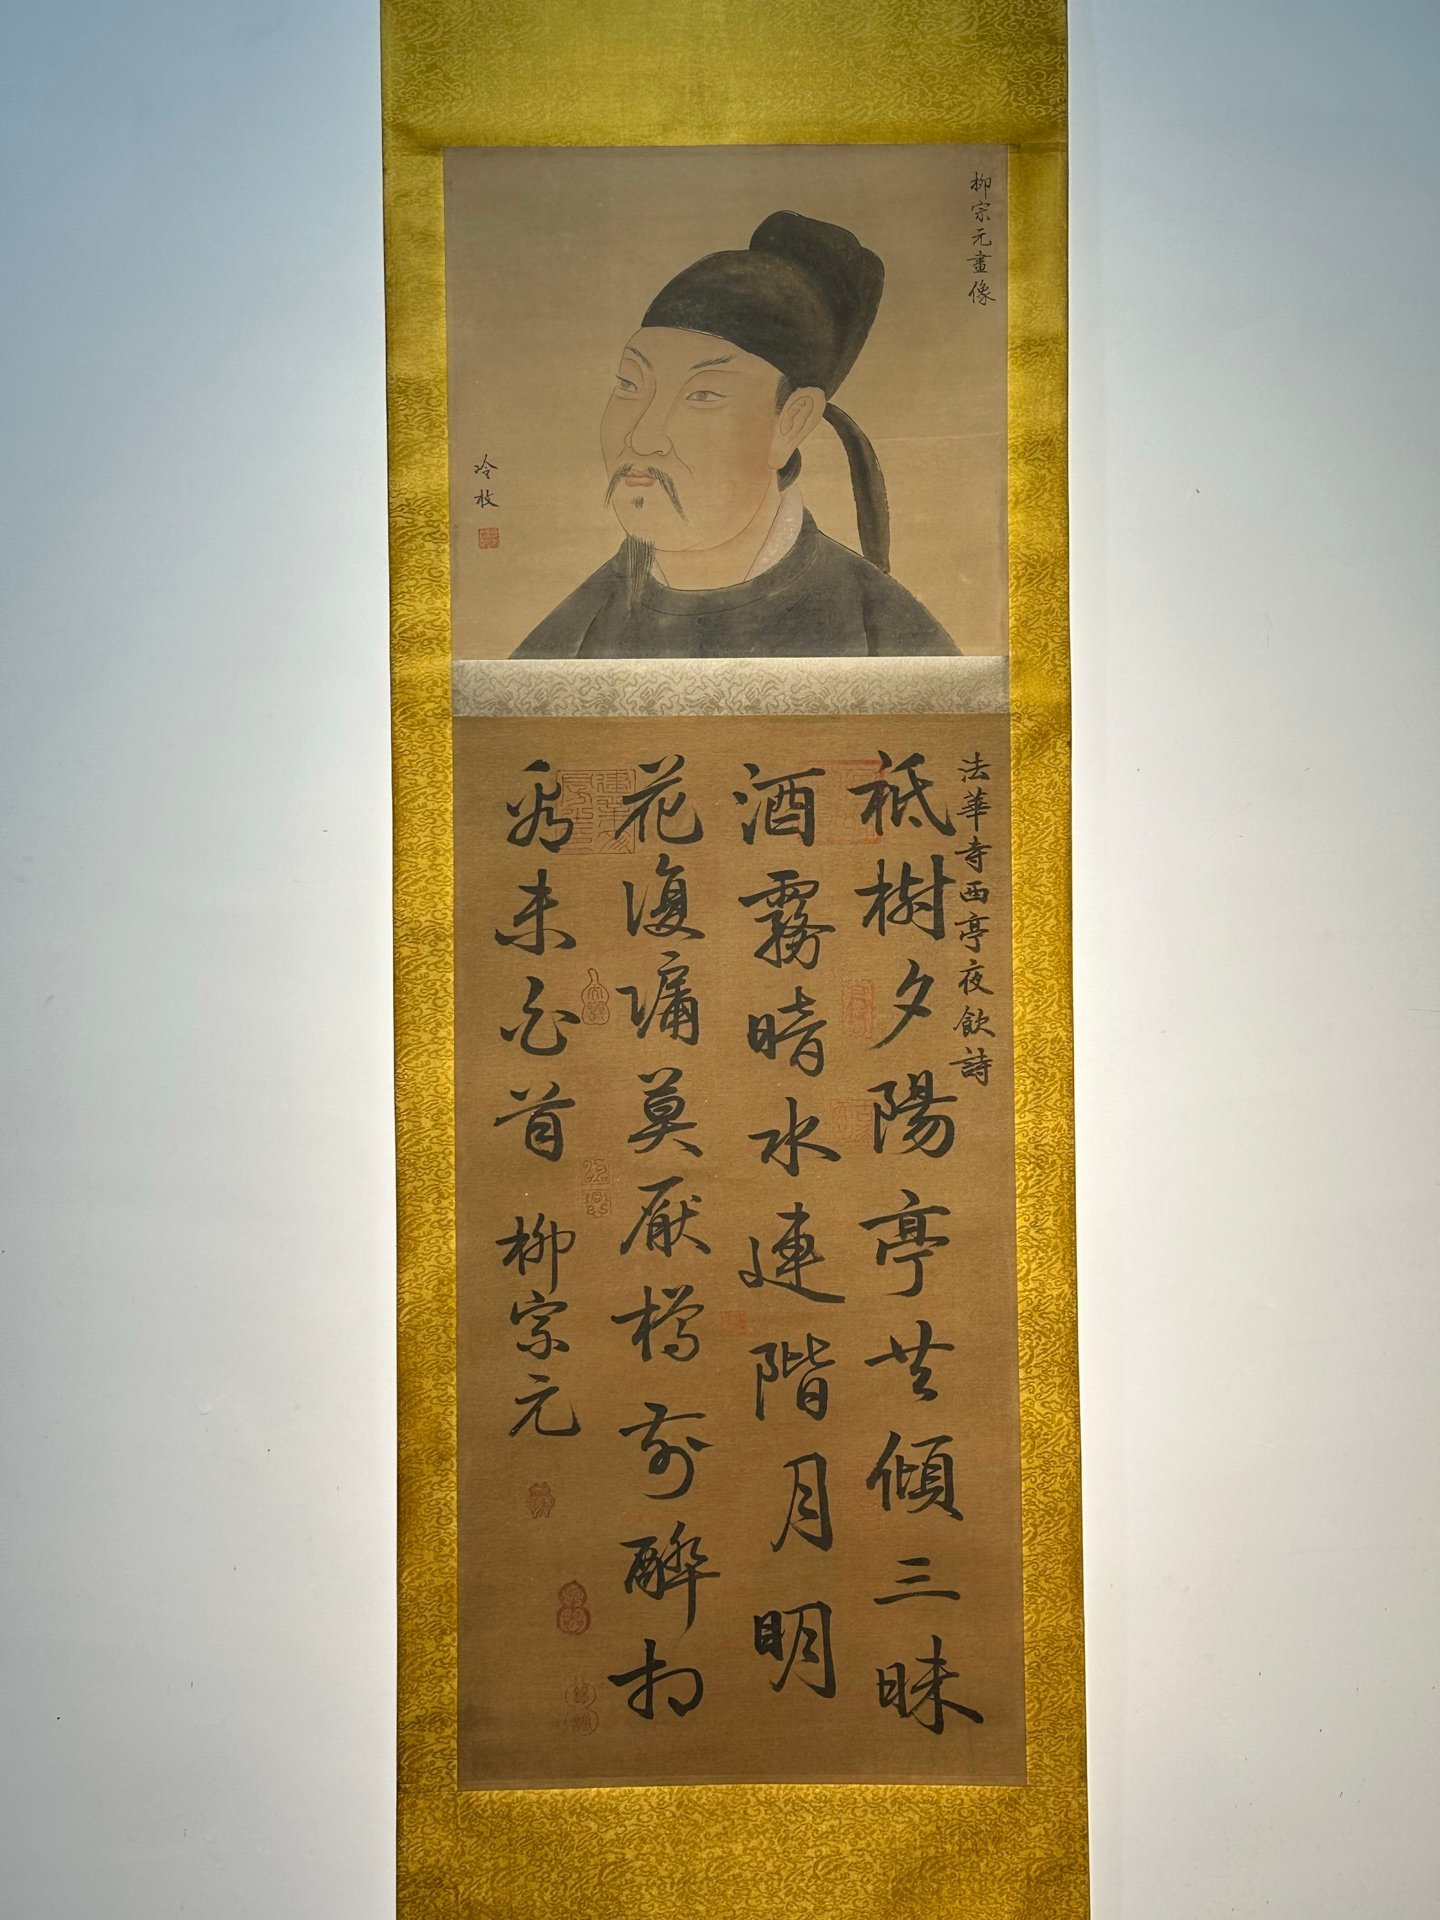 柳宗元畫像
冷枚
法華寺西亭夜飲詩
祇樹夕陽亭共傾三昧
酒霧暗水連階月明
花復牖莫厭樽前醉相
看未白首 柳宗元